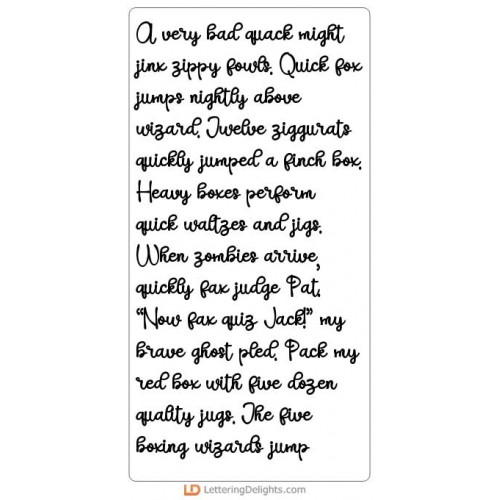 A very bad quack might
jinx zippy fowls. Quick fox
jumps nightly above
wizard. Twelve ziggurats
quickly jumped a finch box.
Heavy boxes perform
quick waltzes and jigs.
When zombies arrive,
quickly fax judge Pat.
“Now fax quiz Jack!” my
brave ghost pled. Pack my
red box with five dozen
quality jugs. The five
boxing wizards jump
LD LetteringDelights.com